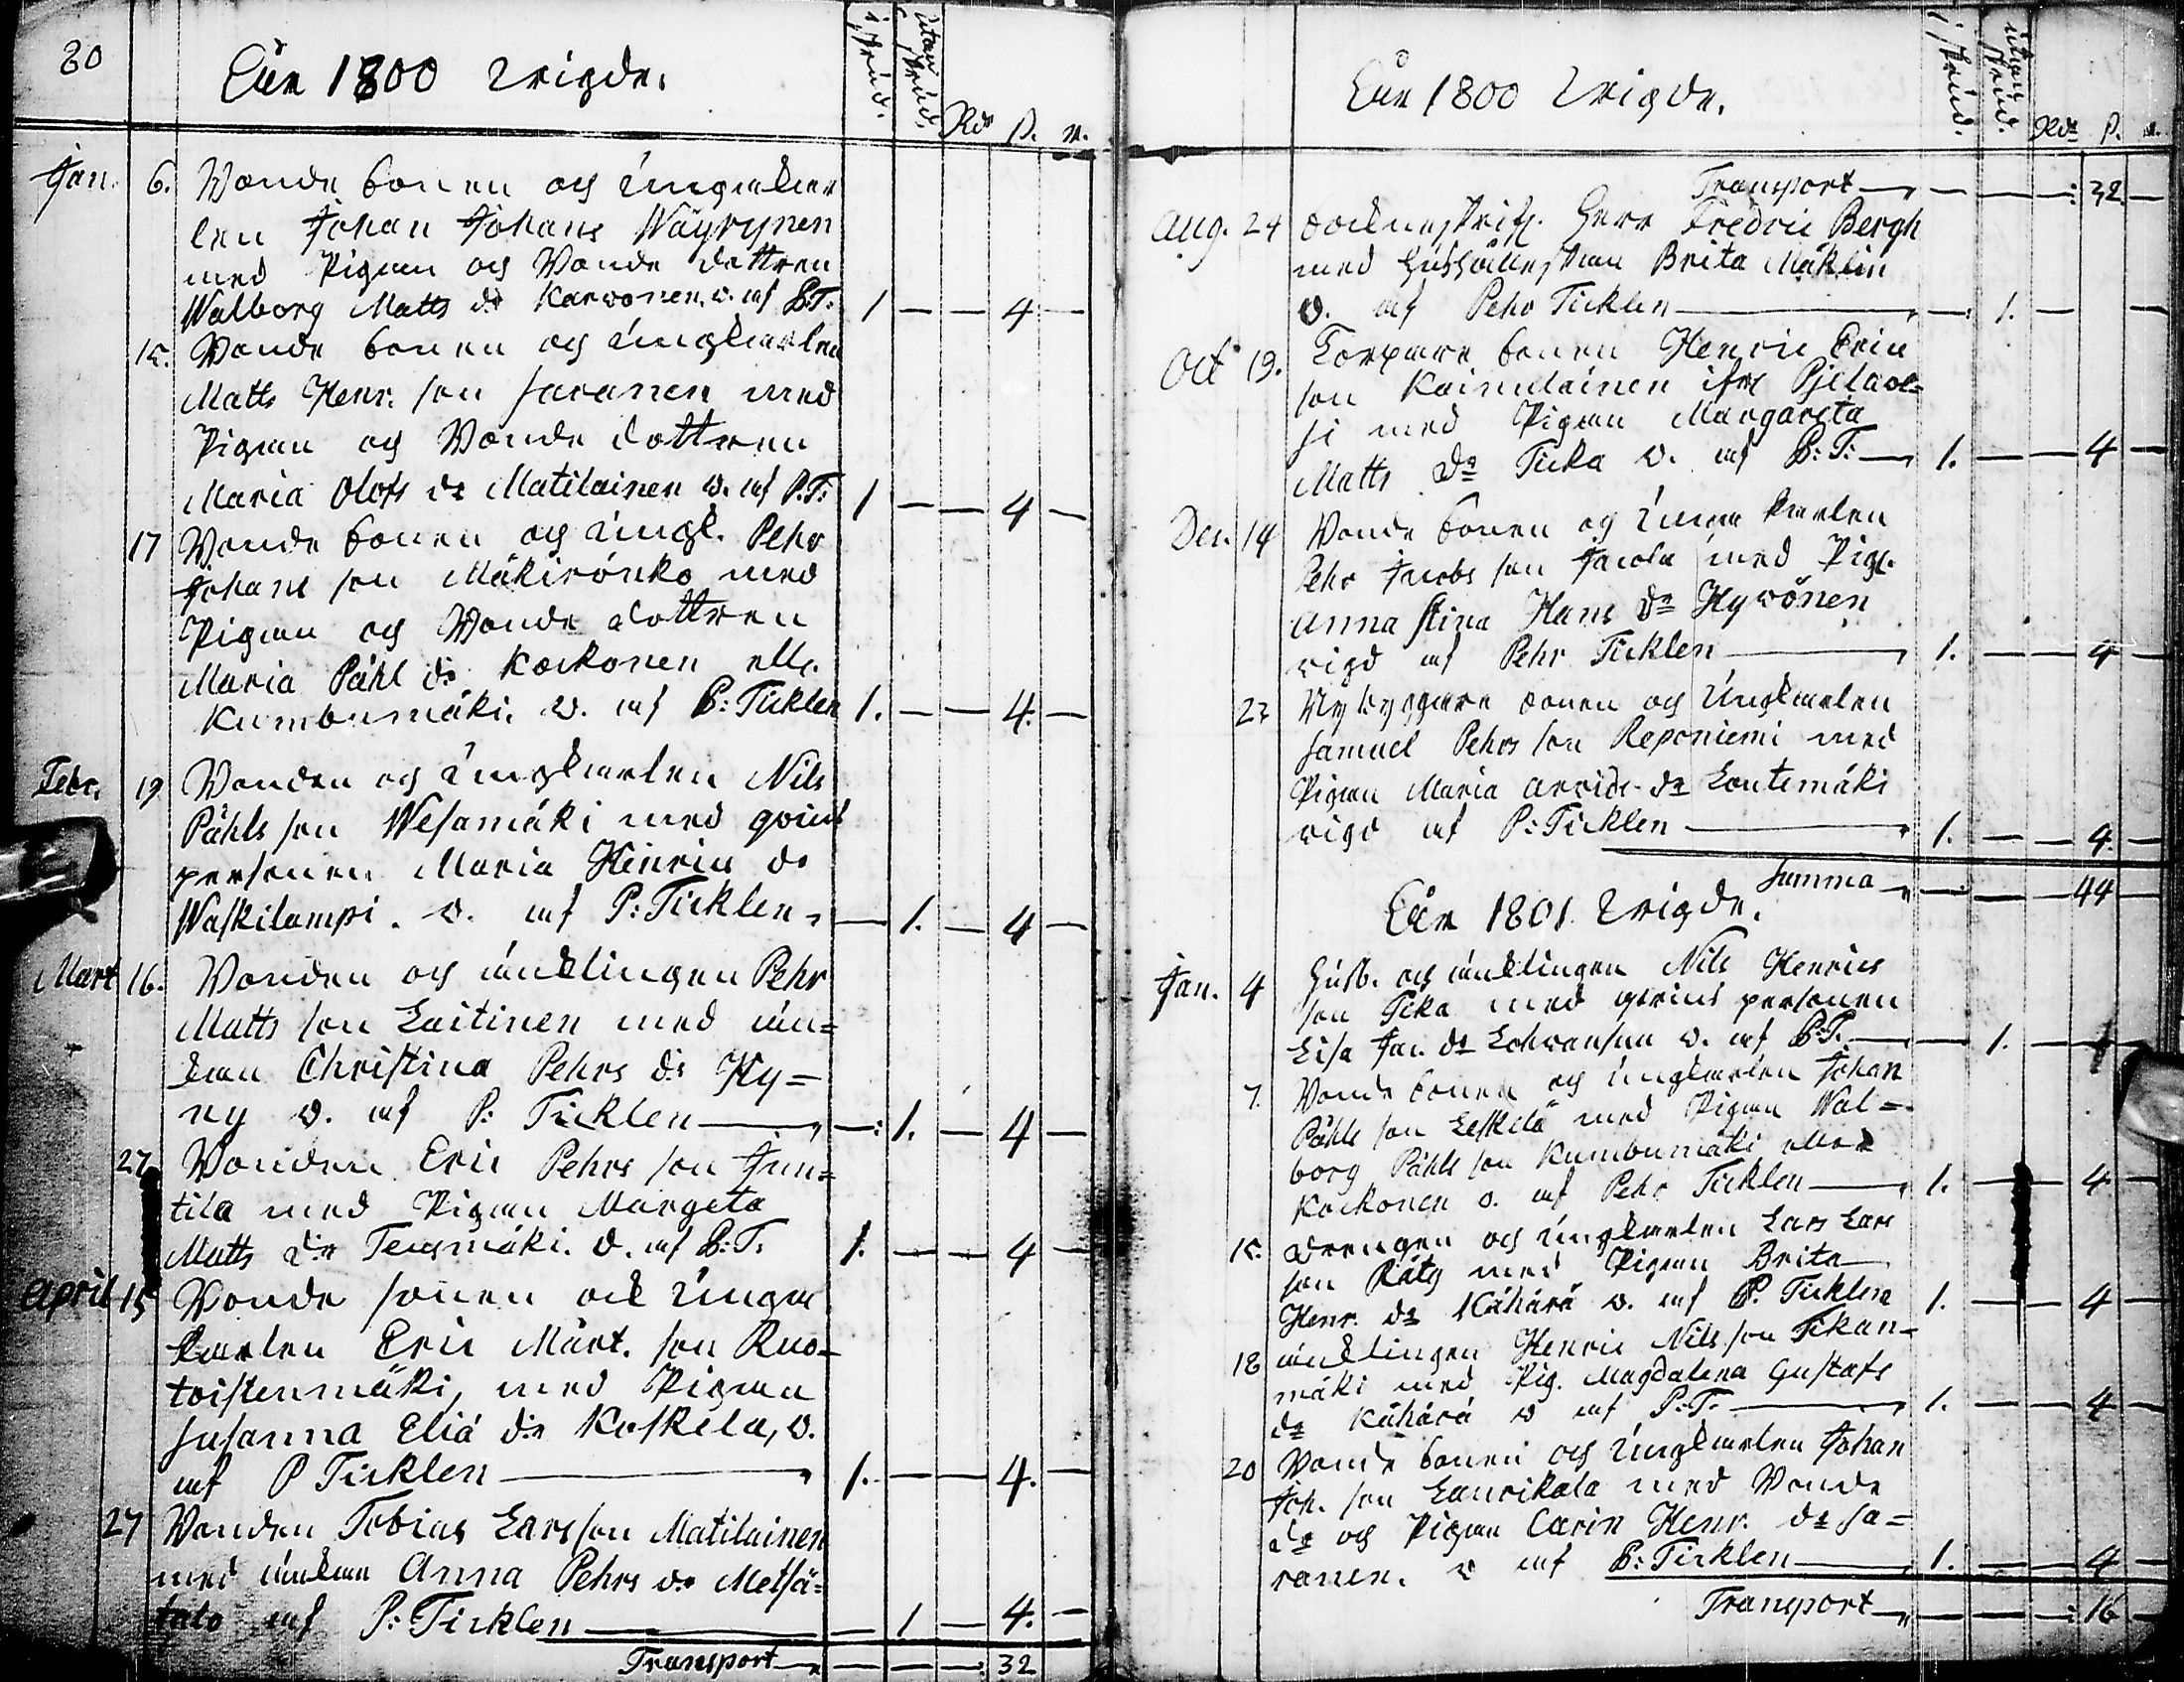 80
Åhr 1800 Vigde.
i skrud.
utan skrud.
Rdr s. r.
Jan. 6. Bonde sonen och Ungkar
len Johan Johans Wäyrynen
med Pigan och Bonde dottren
Walborg Matts dr Karvonen. v. af P.T. 1 — — 4 —
15. Bonde sonen och ungkarlen
Matts Henr. son Saranen med
Pigan och Bonde dottren
Maria Olofs dr Matilainen v. af P.T. 1 — — 4 —
17 Bonde sonen och Ungk. Pehr
Johans son Mäkirönkö med
Pigan och Bonde dottren
Maria Påhl dr Kockonen ell.
Kumbumäki. v. af P: Ticklen 1. — — 4. —
Febr. 19 Bonden och Ungkarlen Nils
Påhls son Wesamäki med qvins
personen Maria Hinrics dr
Waskilampi. v. af P: Ticklen — 1. — 4 —
Mart 16. Bonden och änklingen Pehr
Matts son Laitinen med än=
kan Christina Pehrs dr Hy=
ry v. af P: Ticklen — 1. — 4 —
27 Bonden Eric Pehrs son Jun=
tila med Pigan Margeta
Matts dr Tersmäki. v. af P:T. 1. — — 4 —
April 15 Bonde sonen ock Unga
karlen Eric Mårt. son Ruo=
toistenmäki, med Pigan
Susanna Eliä dr Koskela, v.
af P Ticklen 1. — — 4. —
27 Bonden Tobias Lars son Matilainen
med änkan Anna Pehrs dr Metsä=
talo af P: Ticklen — 1 — 4. —
Transport — — — 32
Åhr 1800 Vigde.
i skrud.
utan skrud.
Rdr s. r.
Transport — — — 32 —
Aug. 24 Sockneskrifv. Herr Fredric Bergh
med Hushållerskan Brita Mäklin
v. af Pehr Ticklen — 1. — —
Oct 19. Torpare sonen Henric Eric
son Kainulainen ifrå Pjelaве=
si med Pigan Margareta
Matts Dr Ticka v. af P:T. 1. — — 4 —
Dec. 14 Bonde sonen och Unga karlen
Pehr Jacobs son Jacola med Pig.
Anna Stina Hans Dr Hyvönen
vigd af Pehr Ticklen 1. — — 4 —
27 Nybyggare sonen och Ungkarlen
Samuel Pehrs son Reponiemi med
Pigan Maria Arvids dr Lontemäki
vigd af P: Ticklen 1. — — 4. —
Summa — — — 44
Åhr 1801 Vigde.
Jan. 4 Husb. och änklingen Nils Henrics
son Tika med qvins personen
Lisa Jac. dr Schwansun v. af P:T. — 1. — 4
7. Bonde sonen och Ungkarlen Johan
Påhls son Leskelä med Pigan Wal=
borg Påhls son Kumbumäki eller
Kockonen v. af Pehr Ticklen 1. — — 4 —
15. Drengen och Ungkarlen Lars Lars
son Räty med Pigan Brita
Henr. dr Kähärä v. af P. Ticklen 1. — — 4 —
18 änklingen Henric Nils son Tikan=
mäki med Pig. Magdalena Gustafs
dr Kähärä v af P:T. 1. — — 4 —
20 Bonde sonen och Ungkarlen Johan
Joh. son Laurikala med Bonde
dr och Pigan Carin Henr. dr Sa=
ranen. v af P: Ticklen 1. — — 4 —
Transport — — — 16